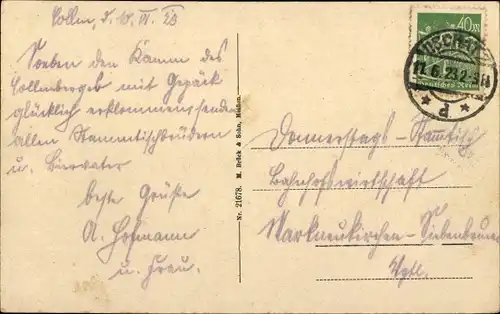 Collm, d. 10. VI. 23
Soeben den Kamm des
Collmbergs mit Gepäck
glücklich erklommen, senden
allen Stammtischbrüdern
u. Biervater
beste Grüße
A. Hofmann
u. Frau.
Nr. 21678. M. Brück & Sohn, Meißen.
40
Deutsches Reich
11.6.23.2-3N
Donnerstags-Stammtisch
Bahnhofswirtschaft
Markneukirchen-Siebenbrunn
Vgtl.